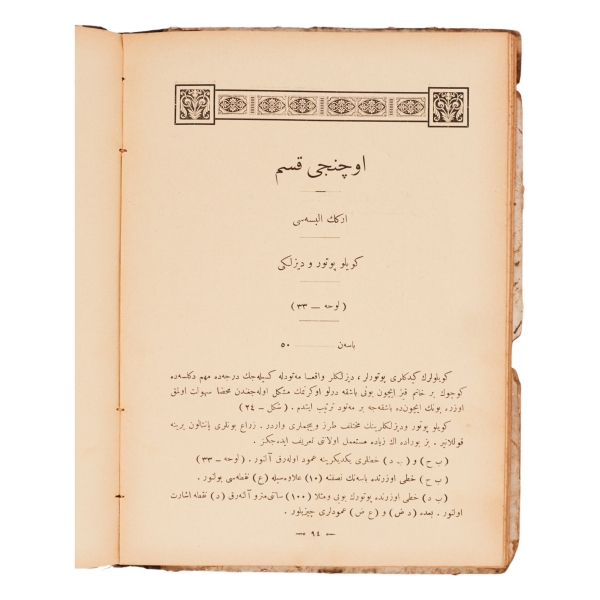 اوچنجی قسم
اركك البسه‌سی
كویلو پوتور و دیزلكی
(لوحه — ٣٣)
باسه‌ن ........ ٥٠
كویلولرك كیدكلری پوتورلر، دیزلكلر واقعا مه‌تودله كسیله‌جك درجه‌ده مهم دكلسه‌ده
كوچوك بر خانم قیز ایچون بونی باشقه درلو اوكرنمك مشكل اوله‌جغندن محضا سهولت اولمق
اوزره بونك ایچون‌ده باشقه‌جه بر مه‌تود ترتیب ایتدم . (شكل — ٢٤)
كویلو پوتور و دیزلكلرینك مختلف طرز و بیچملری واردر . زراع بونلری پانتالون یرینه
قوللانیر . بز بوراده اك زیاده مستعمل اولاننی تعریف ایده‌جكز .
(ب ح) و (ب د) خطلری یكدیكرینه عمود اوله‌رق آلنور . (لوحه — ٣٣)
(ب ح) خطی اوزرنده باسه‌نك نصفنه (١٠) علاوه‌سیله (ع) نقطه‌سی بولنور .
(ب د) خطی اوزرنده پوتورك بویی ومثلا (١٠٠) سانتی‌مترو آلنه‌رق (د) نقطه اشارت
اولنور . بعده (د ض) و (ع ض) عمودلری چیزیلور .
— ٩٤ —